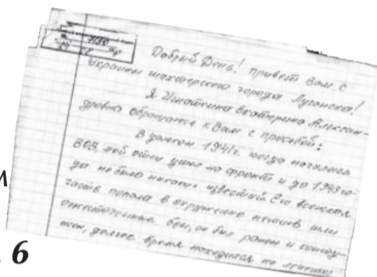 1180
Добрый День! привет Вам с
Украины шахтерского города Луганска!
Я Ишоткина Екатерина Алексан-
дровна обращаюсь к Вам с просьбой:
В далеком 1941г. когда началась
ВОВ мой отец ушел на фронт и до 1943 го-
да не было никаких известий. Его воинская
часть попала в окружение немцев шли
ожесточенные бои, он был ранен и контуз-
жен, долгое время находился на лечении
и
6